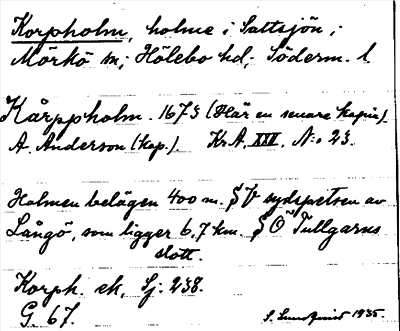 Korpholm, holme i Saltsjön;
Mörkö sn; Hölebo hd; Söderm. l.
Kårppholm. 1673 (Här en senare kopia).
A. Anderson (kop.) Kr.A. XXV. N:o 23.
Holmen belägen 400 m. SV sydspetsen av
Långö, som ligger 6.7 km. SO Tullgarns
slott.
Korph. ek. Sj. 238.
G. 67.
S. Sundqvist 1935.